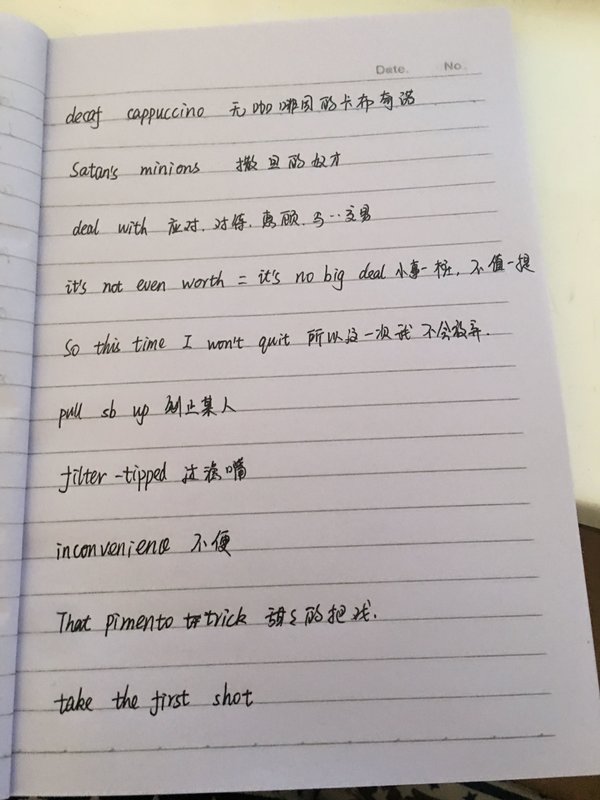 Date. No.
decaf cappuccino 无咖啡因的卡布奇诺
Satan's minions 撒旦的奴才
deal with 应对.对待.惠顾.与…交易
it's not even worth = it's no big deal 小事一桩,不值一提
So this time I won't quit 所以这一次我不会放弃.
pull sb up 制止某人
filter-tipped 过滤嘴
inconvenience 不便
That pimento trick 甜々的把戏.
take the first shot